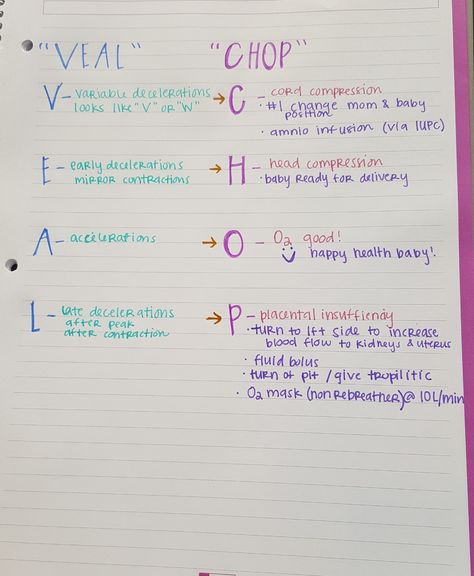 "VEAL" "CHOP"
V - variable decelerations → C - cord compression
looks like "V" or "W" · #1 change mom & baby
position
· amnio infusion (via IUPC)
E - early decelerations → H - head compression
mirror contractions · baby ready for delivery
A - accelerations → O - O2 good!
happy health baby!
L - late decelerations → P - placental insufficiency
after peak · turn to lft side to increase
after contraction blood flow to kidneys & uterus
· fluid bolus
· turn of pit / give tropilitic
· O2 mask (nonrebreather) @ 10L/min